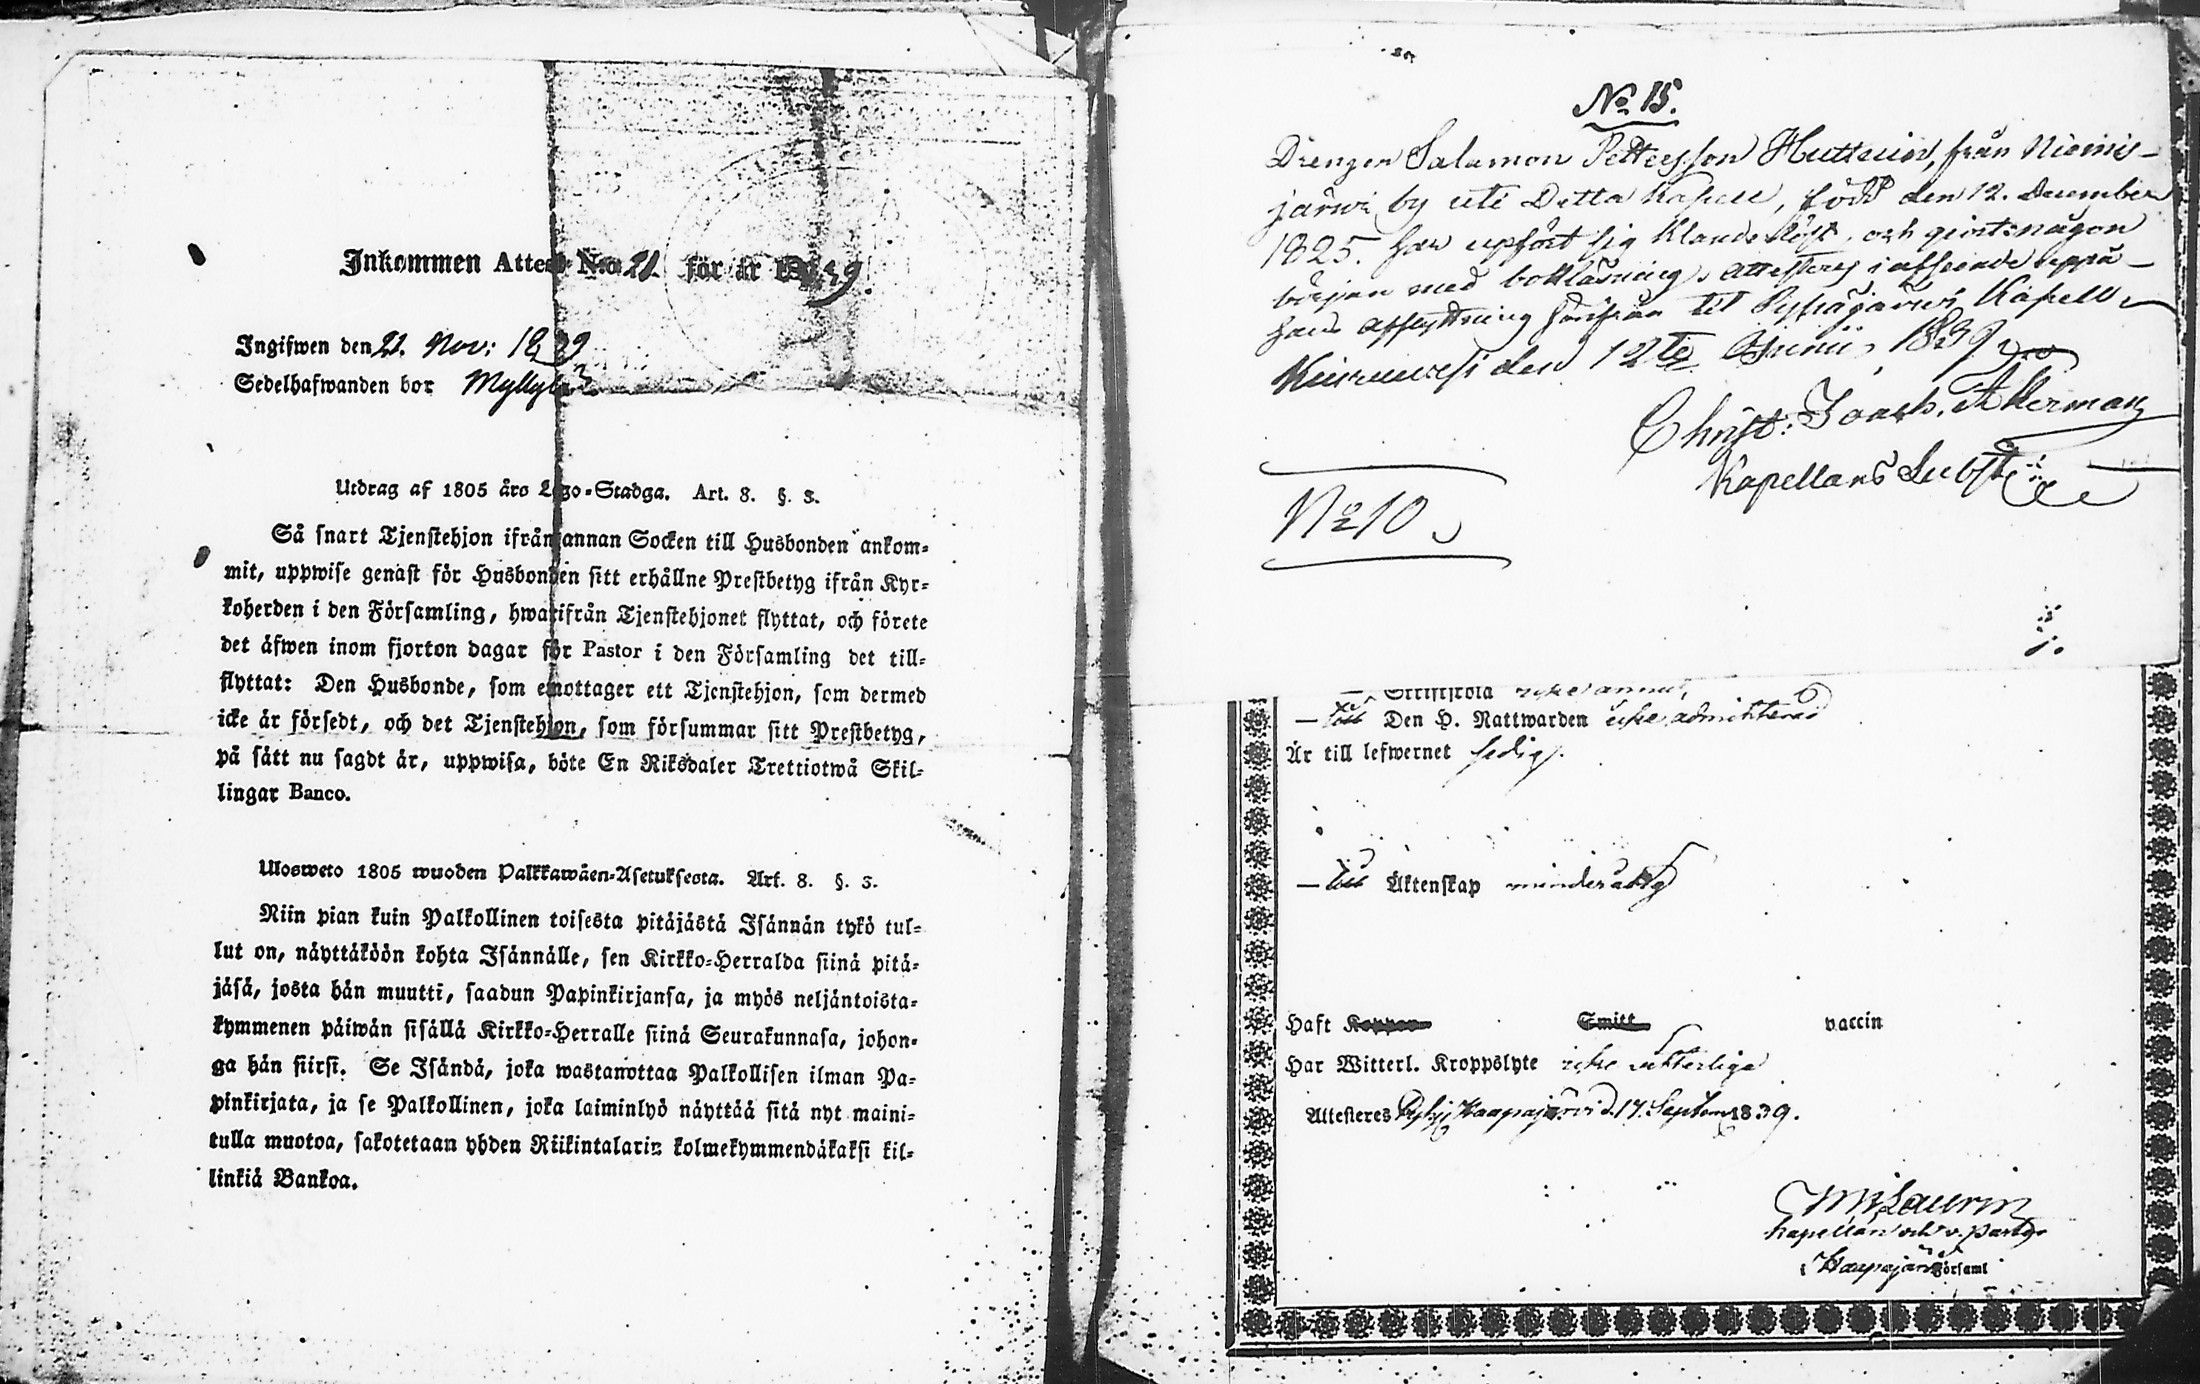 Inkommen Attest N:o 21 för år 1839.
Ingifwen den 21. Nov: 1839
Sedelhafwanden bor
Utdrag af 1805 års Lego-Stadga. Art. 8. §. 3.
Så snart Tjenstehjon ifrån annan Socken till Husbonden ankom-
mit, uppwise genast för Husbonden sitt erhållne Prestbetyg ifrån Kyr-
koherden i den Församling, hwarifrån Tjenstehjonet flyttat, och förete
det äfwen inom fjorton dagar för Pastor i den Församling det till-
flyttat: Den Husbonde, som emottager ett Tjenstehjon, som dermed
icke är försedt, och det Tjenstehjon, som försummar sitt Prestbetyg,
på sätt nu sagdt är, uppwisa, böte En Riksdaler Trettiotwå Skil-
lingar Banco.
Ulosweto 1805 wuoden Palkkawäen-Asetuksesta. Art. 8. §. 3.
Niin pian kuin Palkollinen toisesta pitäjästä Isännän tykö tul-
lut on, näyttäköön kohta Isännälle, sen Kirkko-Herralda siinä pitä-
jäsä, josta hän muutti, saadun Papinkirjansa, ja myös neljäntoista-
kymmenen päiwän sisällä Kirkko-Herralle siinä Seurakunnasa, johon-
ga hän siirsi. Se Isändä, joka wastanottaa Palkollisen ilman Pa-
pinkirjata, ja se Palkollinen, joka laiminlyö näyttää sitä nyt maini-
tulla muotoa, sakotetaan yhden Riikintalarin kolmekymmendäkaksi kil-
linkiä Bankoa.
No 15.
Drengen Salamon Pettersson Huttuinen, från Niemis-
järwi by uti Detta Kapell, född den 12. December
1825. har upfört sig Klanderlöst, och gjort någon
början med bokläsning, attesteras i afseende uppå
hans afflyttning härifrån til Pyhäjärwi Kapell
Kiuruwesi den 12te Junii 1839
Christ: Joach. Akerman
Kapellans Subst:
No 10
Skriftskola icke
Den H. Nattwarden icke admitterad
Är till lefwernet ledig.
till Äktenskap minderårig
Haft Koppor Smitt vaccin
Har Witterl. Kroppslyte icke witterliga
Attesteres Haapajärvi d. 17. Septem 1839.
Laurin
Kapellan och v. Pastor
i Haapajärvi Församl